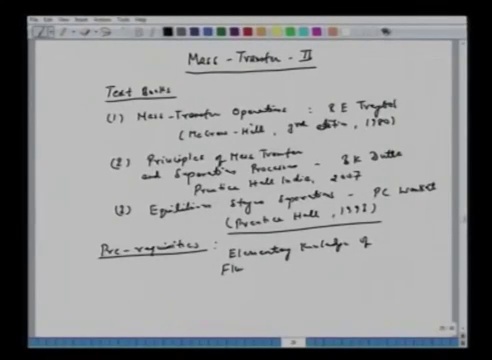 Mass - Transfer - II
Text Books
(1) Mass - Transfer Operations : R E Treybal
(McGraw-Hill, 3rd edition, 1980)
(2) Principles of Mass Transfer
and Separation Processes - B K Dutta
Prentice Hall India, 2007
(3) Equilibrium Stage Separations - PC Wankat
(Prentice Hall, 1993)
Pre-requisites : Elementary Knowledge of
Flu